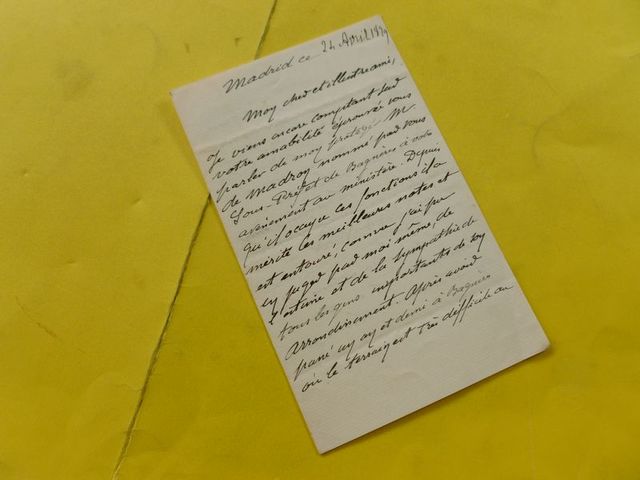 Madrid ce 24 Avril 1879
Moy cher et illustre ami,
Je viens encore comptant sur
votre amabilité éprouvée vous
parler de moy protégé M.
de Madroy nommé par vous
Sous-Préfet de Bagnères à votre
avènement au ministère. Depuis
qu'il occupe ces fonctions il a
mérité les meilleures notes et
est entouré, comme j'ai pu
en juger par moi même, de
l'estime et de la sympathie de
tous les gens importants de soy
Arrondissement. Après avoir
passé uy ay et demi à Bagnères
où le terraiy est très difficile au